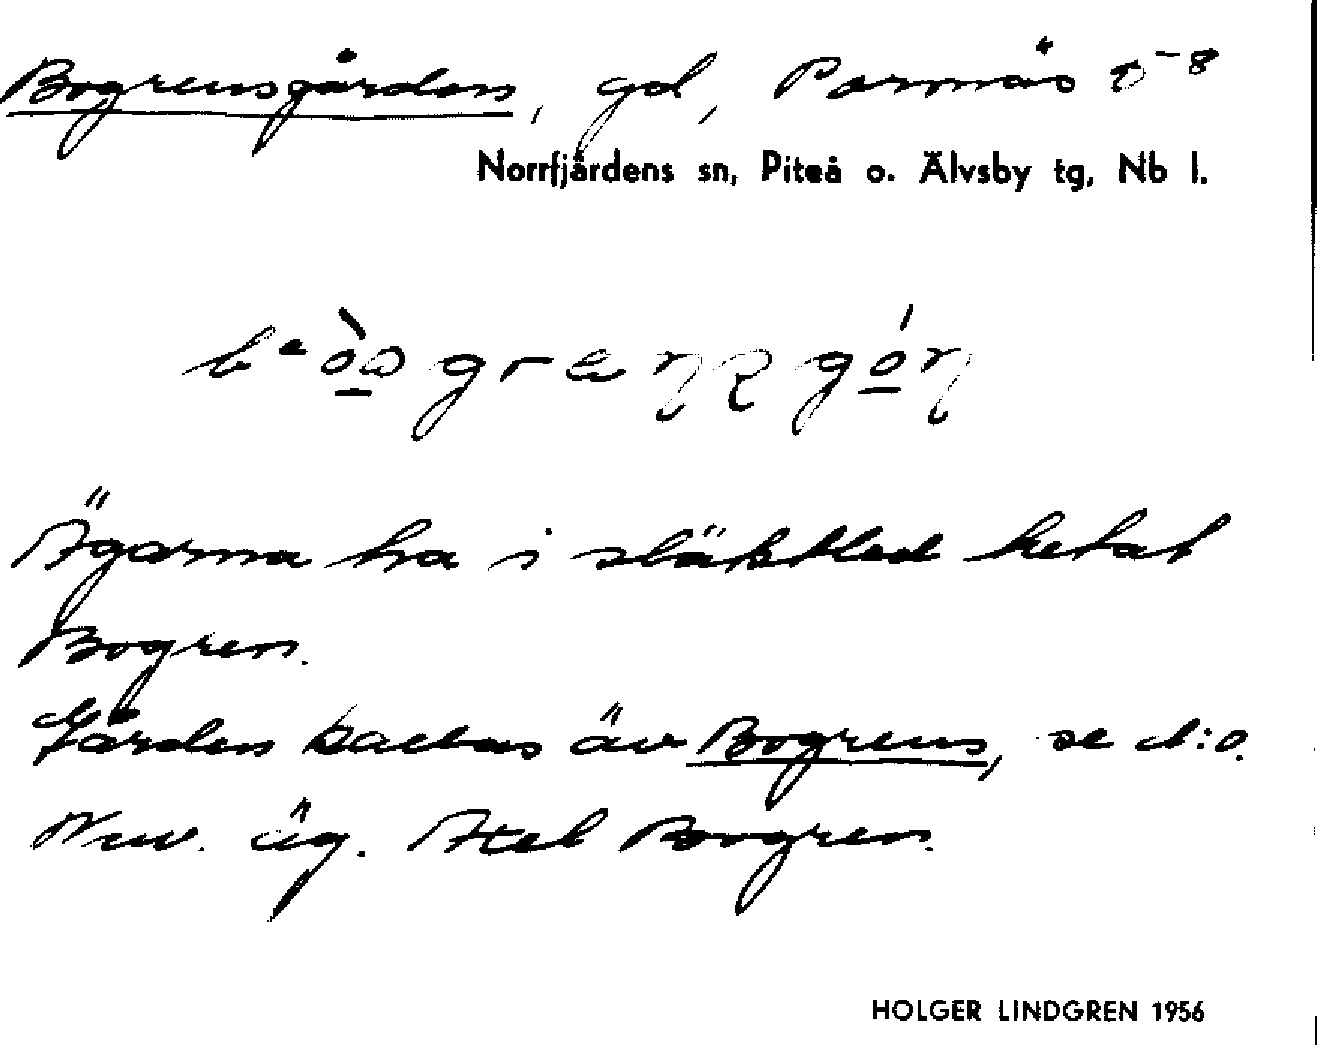 Bogrensgården, gd, Porsnäs 5-8
Norrfjärdens sn, Piteå o. Älvsby tg, Nb l.
Ägarna ha i släktled hetat
Bogren.
Gården kallas äv Bogrens, se d:o.
Nuv. äg. Axel Bogren.
HOLGER LINDGREN 1956